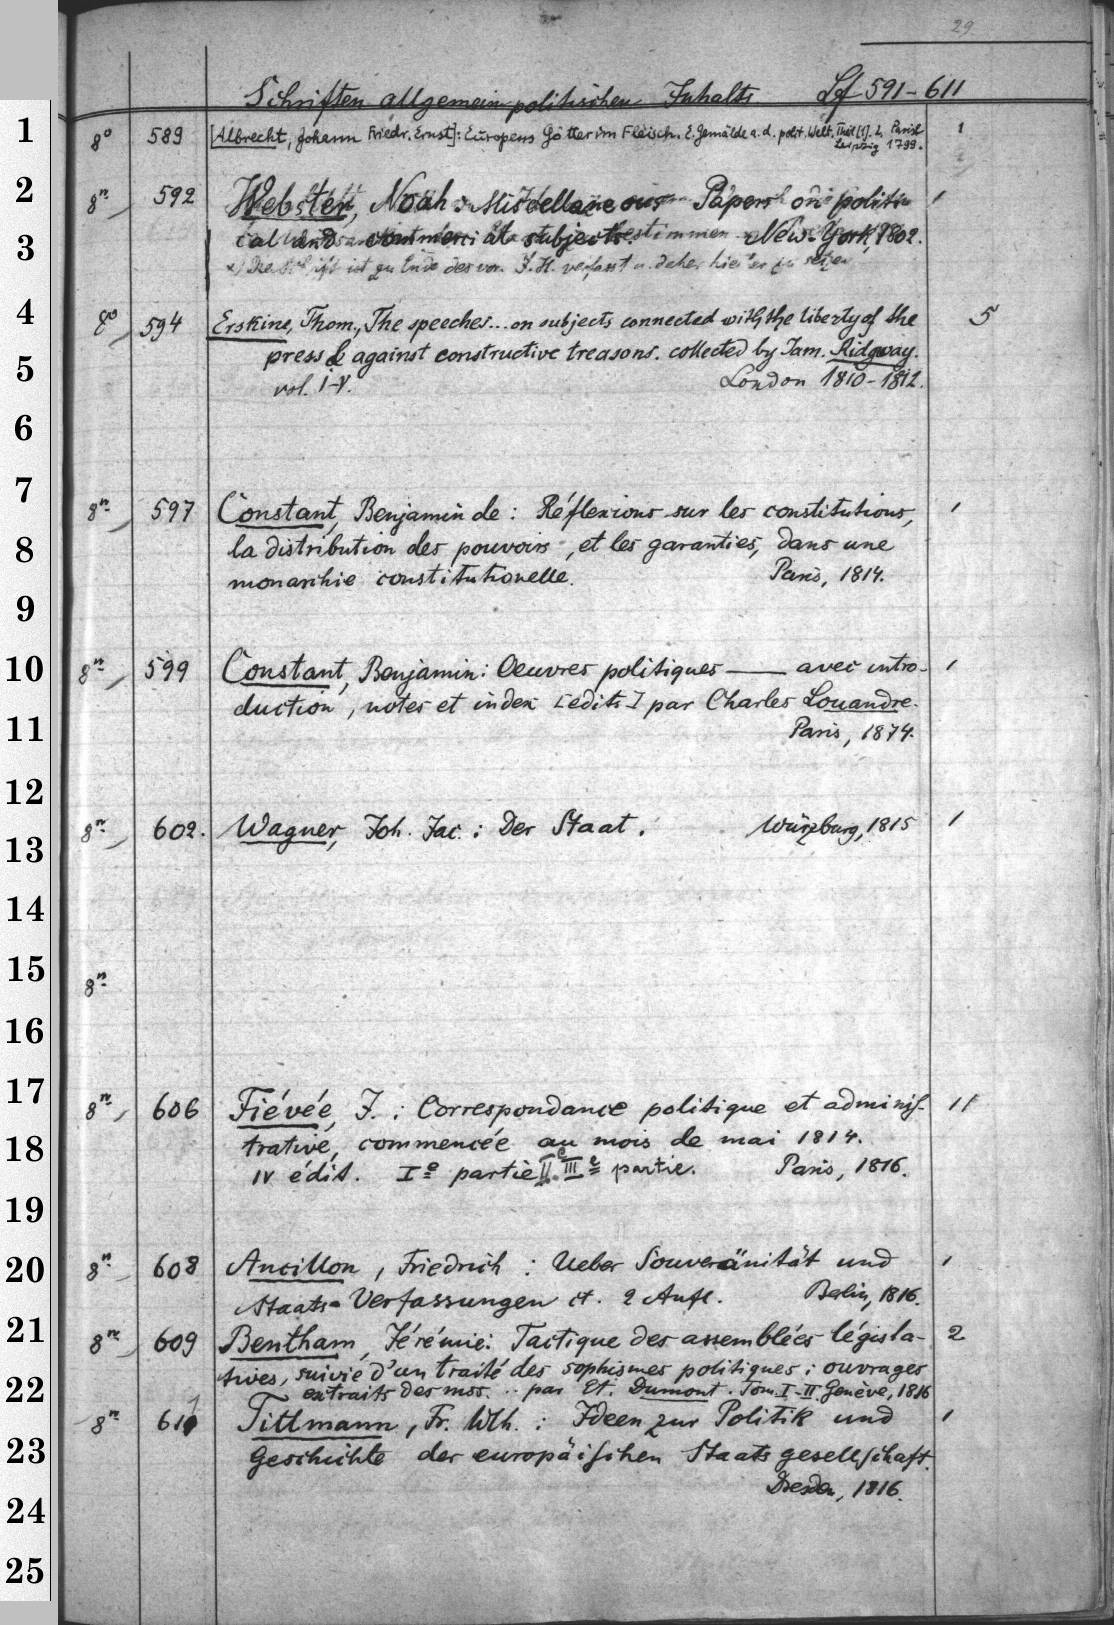 29
Schriften allgemein politischen Inhalts Lf 591-611
8° 589 [Albrecht, Johann Friedr. Ernst]: Europens Götter im Fleisch. E. Gemälde a. d. polit. Welt. Theil [1]. 2. Paris 1
Leipzig 1799.
8n. 592 Webster, Noah: Miscellaneous Papers on politi- 1
cal and commercial subjects. New-York, 1802.
8° 594 Erskine, Thom., The speeches... on subjects connected with the liberty of the 5
press & against constructive treasons. collected by Jam. Ridgway.
vol. I-V. London 1810-1812.
8n. 597 Constant, Benjamin de: Réflexions sur les constitutions, 1
la distribution des pouvoirs, et les garanties, dans une
monarchie constitutionelle. Paris, 1814.
8n. 599 Constant, Benjamin: Oeuvres politiques —— avec intro- 1
duction, notes et index [edits] par Charles Louandre.
Paris, 1874.
8n. 602. Wagner, Joh. Jac.: Der Staat. Würzburg, 1815 1
8n.
8n. 606 Fiévée, J.: Correspondance politique et adminis- 11
trative, commencée au mois de mai 1814.
IV édit. Ie partie IIe IIIe partie. Paris, 1816.
8n. 608 Ancillon, Friedrich: Ueber Souveränität und 1
Staats-Verfassungen et. 2 Aufl. Berlin, 1816.
8n. 609 Bentham, Jérémie: Tactique des assemblées législa- 2
tives, suivie d'un traité des sophismes politiques; ouvrages
extraits des mss... par Et. Dumont. Tom. I-II. Genève, 1816
8n. 611 Tittmann, Fr. Wth.: Ideen zur Politik und 1
Geschichte der europäischen Staatsgesellschaft.
Dresden, 1816.
1
2
3
4
5
6
7
8
9
10
11
12
13
14
15
16
17
18
19
20
21
22
23
24
25